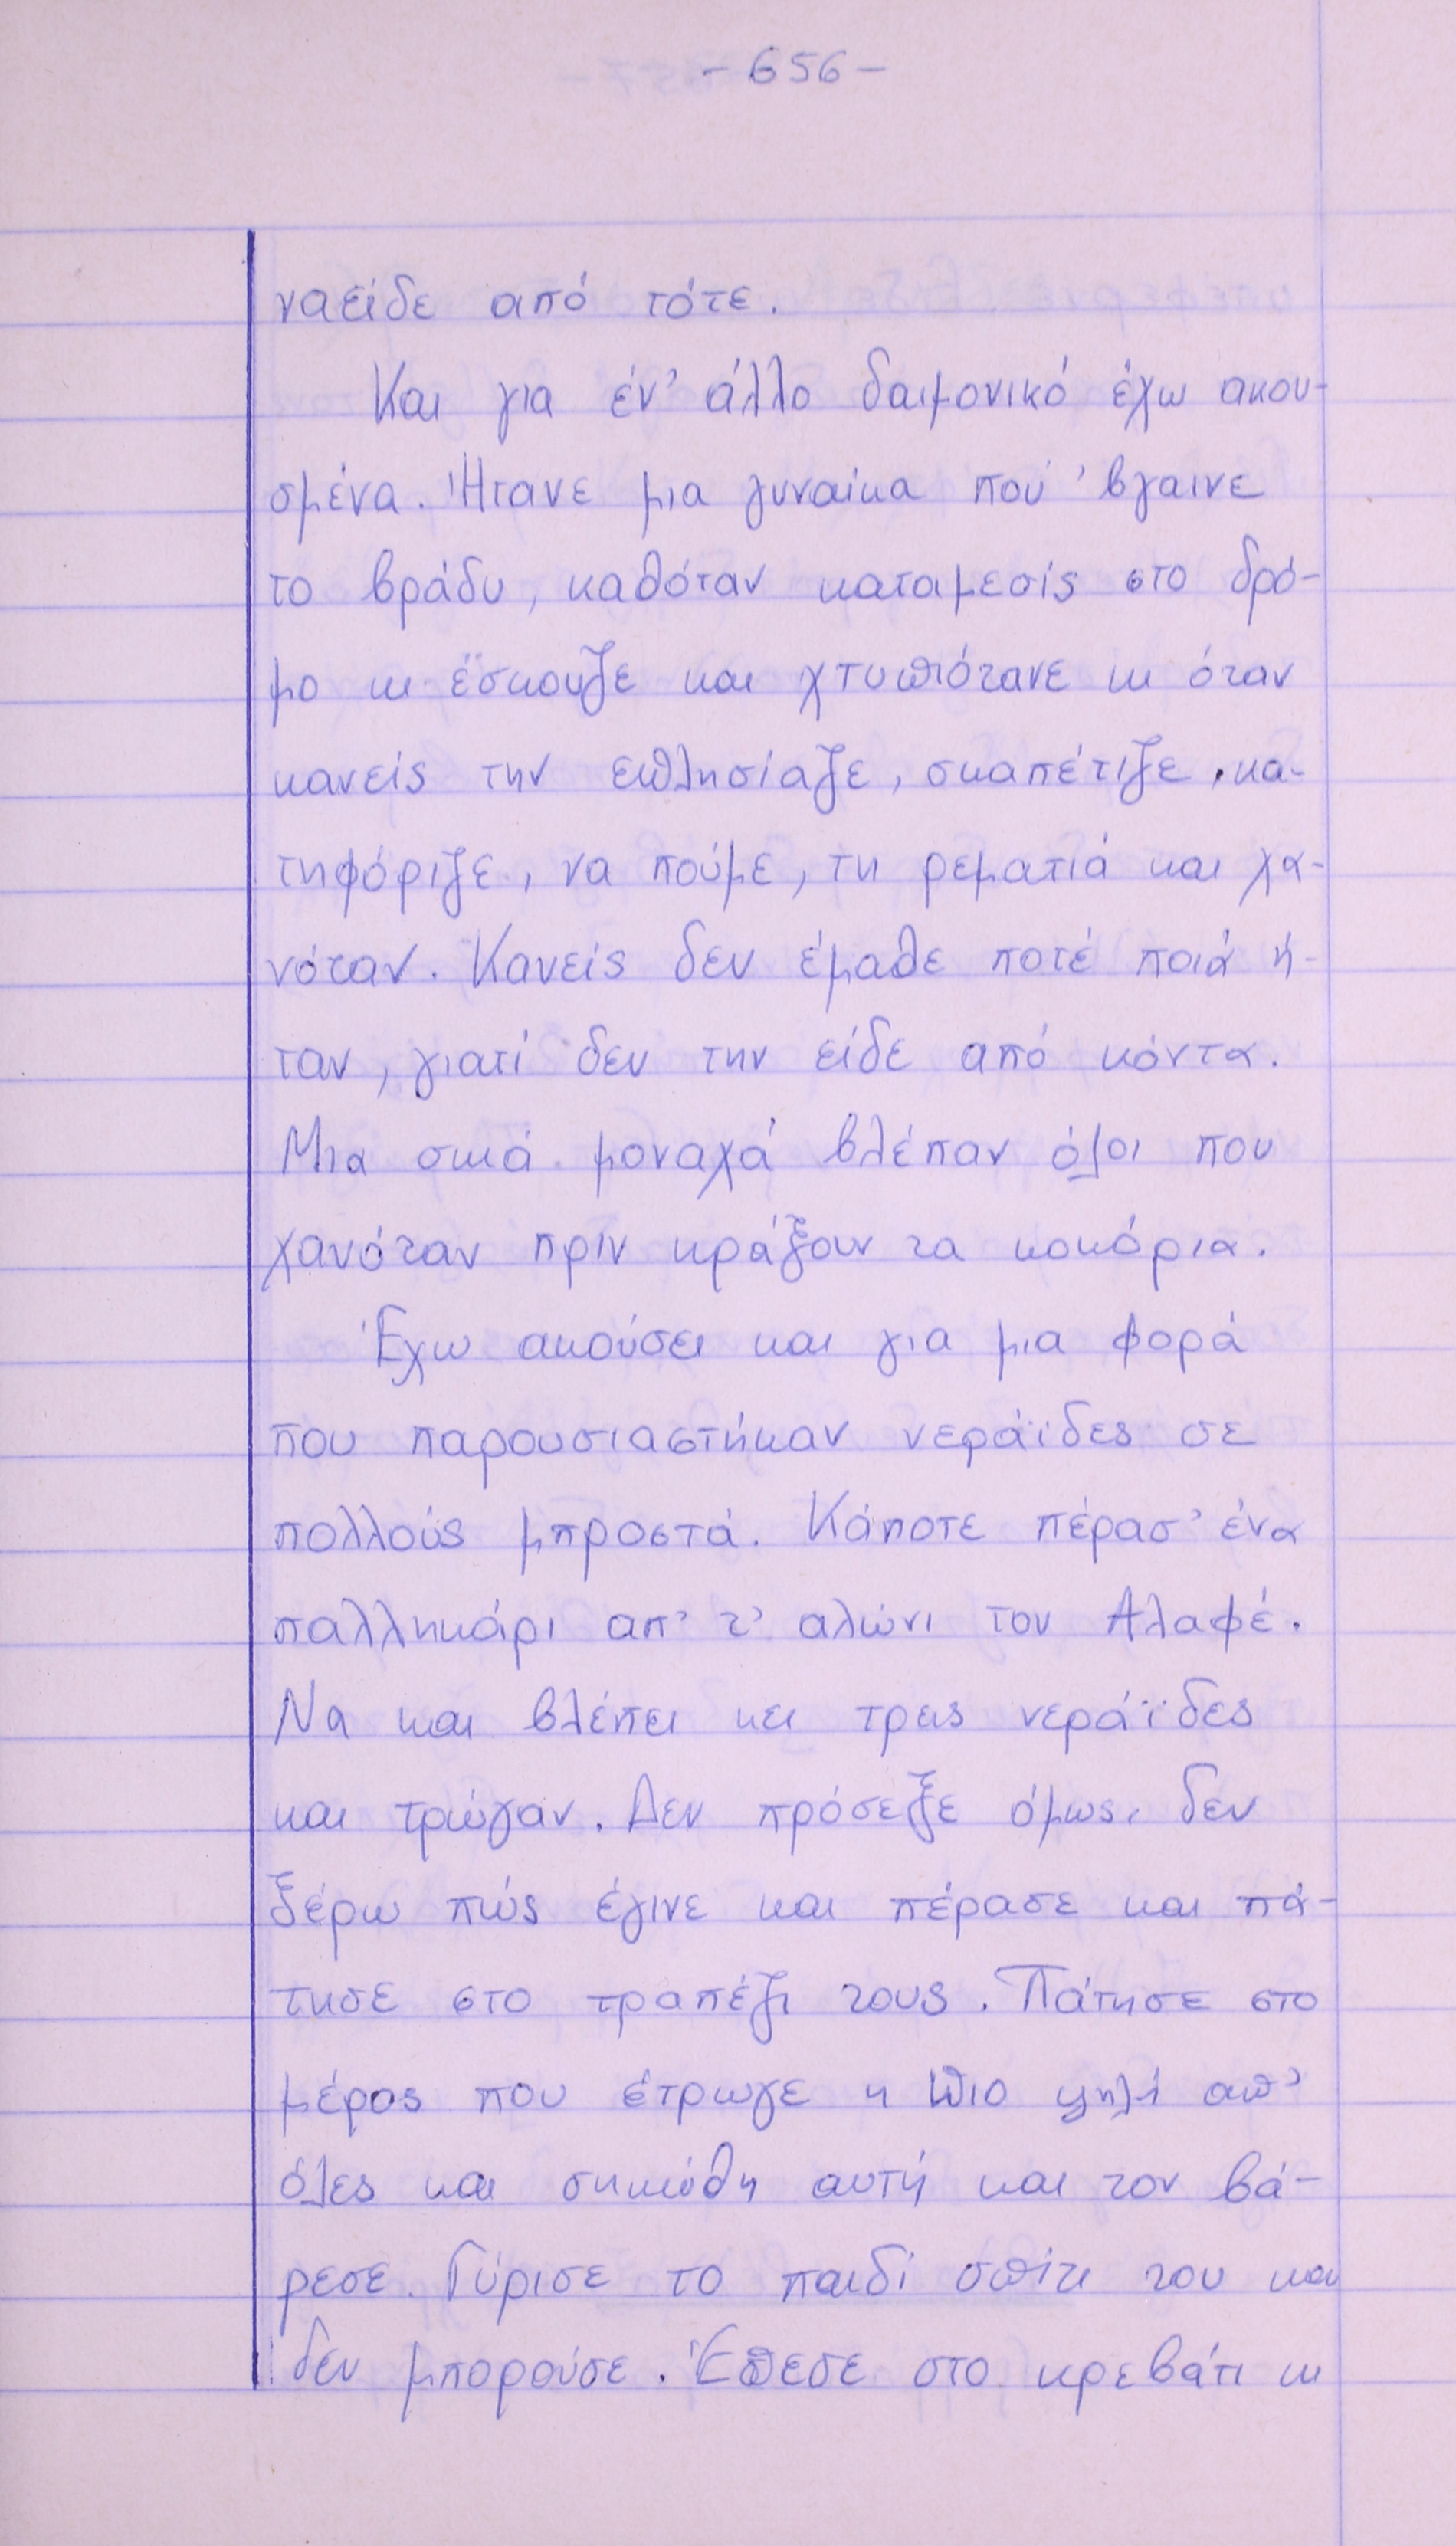 - 656 -
ναείδε από τότε.
Και για έν' άλλο δαιμονικό έχω ακου-
σμένα. Ήτανε μια γυναίκα πού 'βγαινε
το βράδυ, καθόταν καταμεσίς στο δρό-
μο κι έσκουζε και χτυπιότανε κι όταν
κανείς την επλησίαζε, σκαπέτιζε, κα-
τηφόριζε, να πούμε, τη ρεματιά και χα-
νόταν. Κανείς δεν έμαθε ποτέ ποιά ή-
ταν, γιατί δεν την είδε από κόντα.
Μια σκιά μοναχά βλέπαν όλοι που
χανόταν πριν κράξουν τα κοκόρια.
Έχω ακούσει και για μια φορά
που παρουσιαστήκαν νεράϊδες σε
πολλούς μπροστά. Κάποτε πέρασ' ένα
παλληκάρι απ' τ' αλώνι του Αλαφέ.
Να και βλέπει κει τρεις νεράϊδες
και τρώγαν. Δεν πρόσεξε όμως, δεν
ξέρω πώς έγινε και πέρασε και πά-
τησε στο τραπέζι τους. Πάτησε στο
μέρος που έτρωγε η πιο ψηλή απ'
όλες και σηκώθη αυτή και τον βά-
ρεσε. Γύρισε το παιδί σπίτι του και
δεν μπορούσε. Έπεσε στο κρεβάτι κι